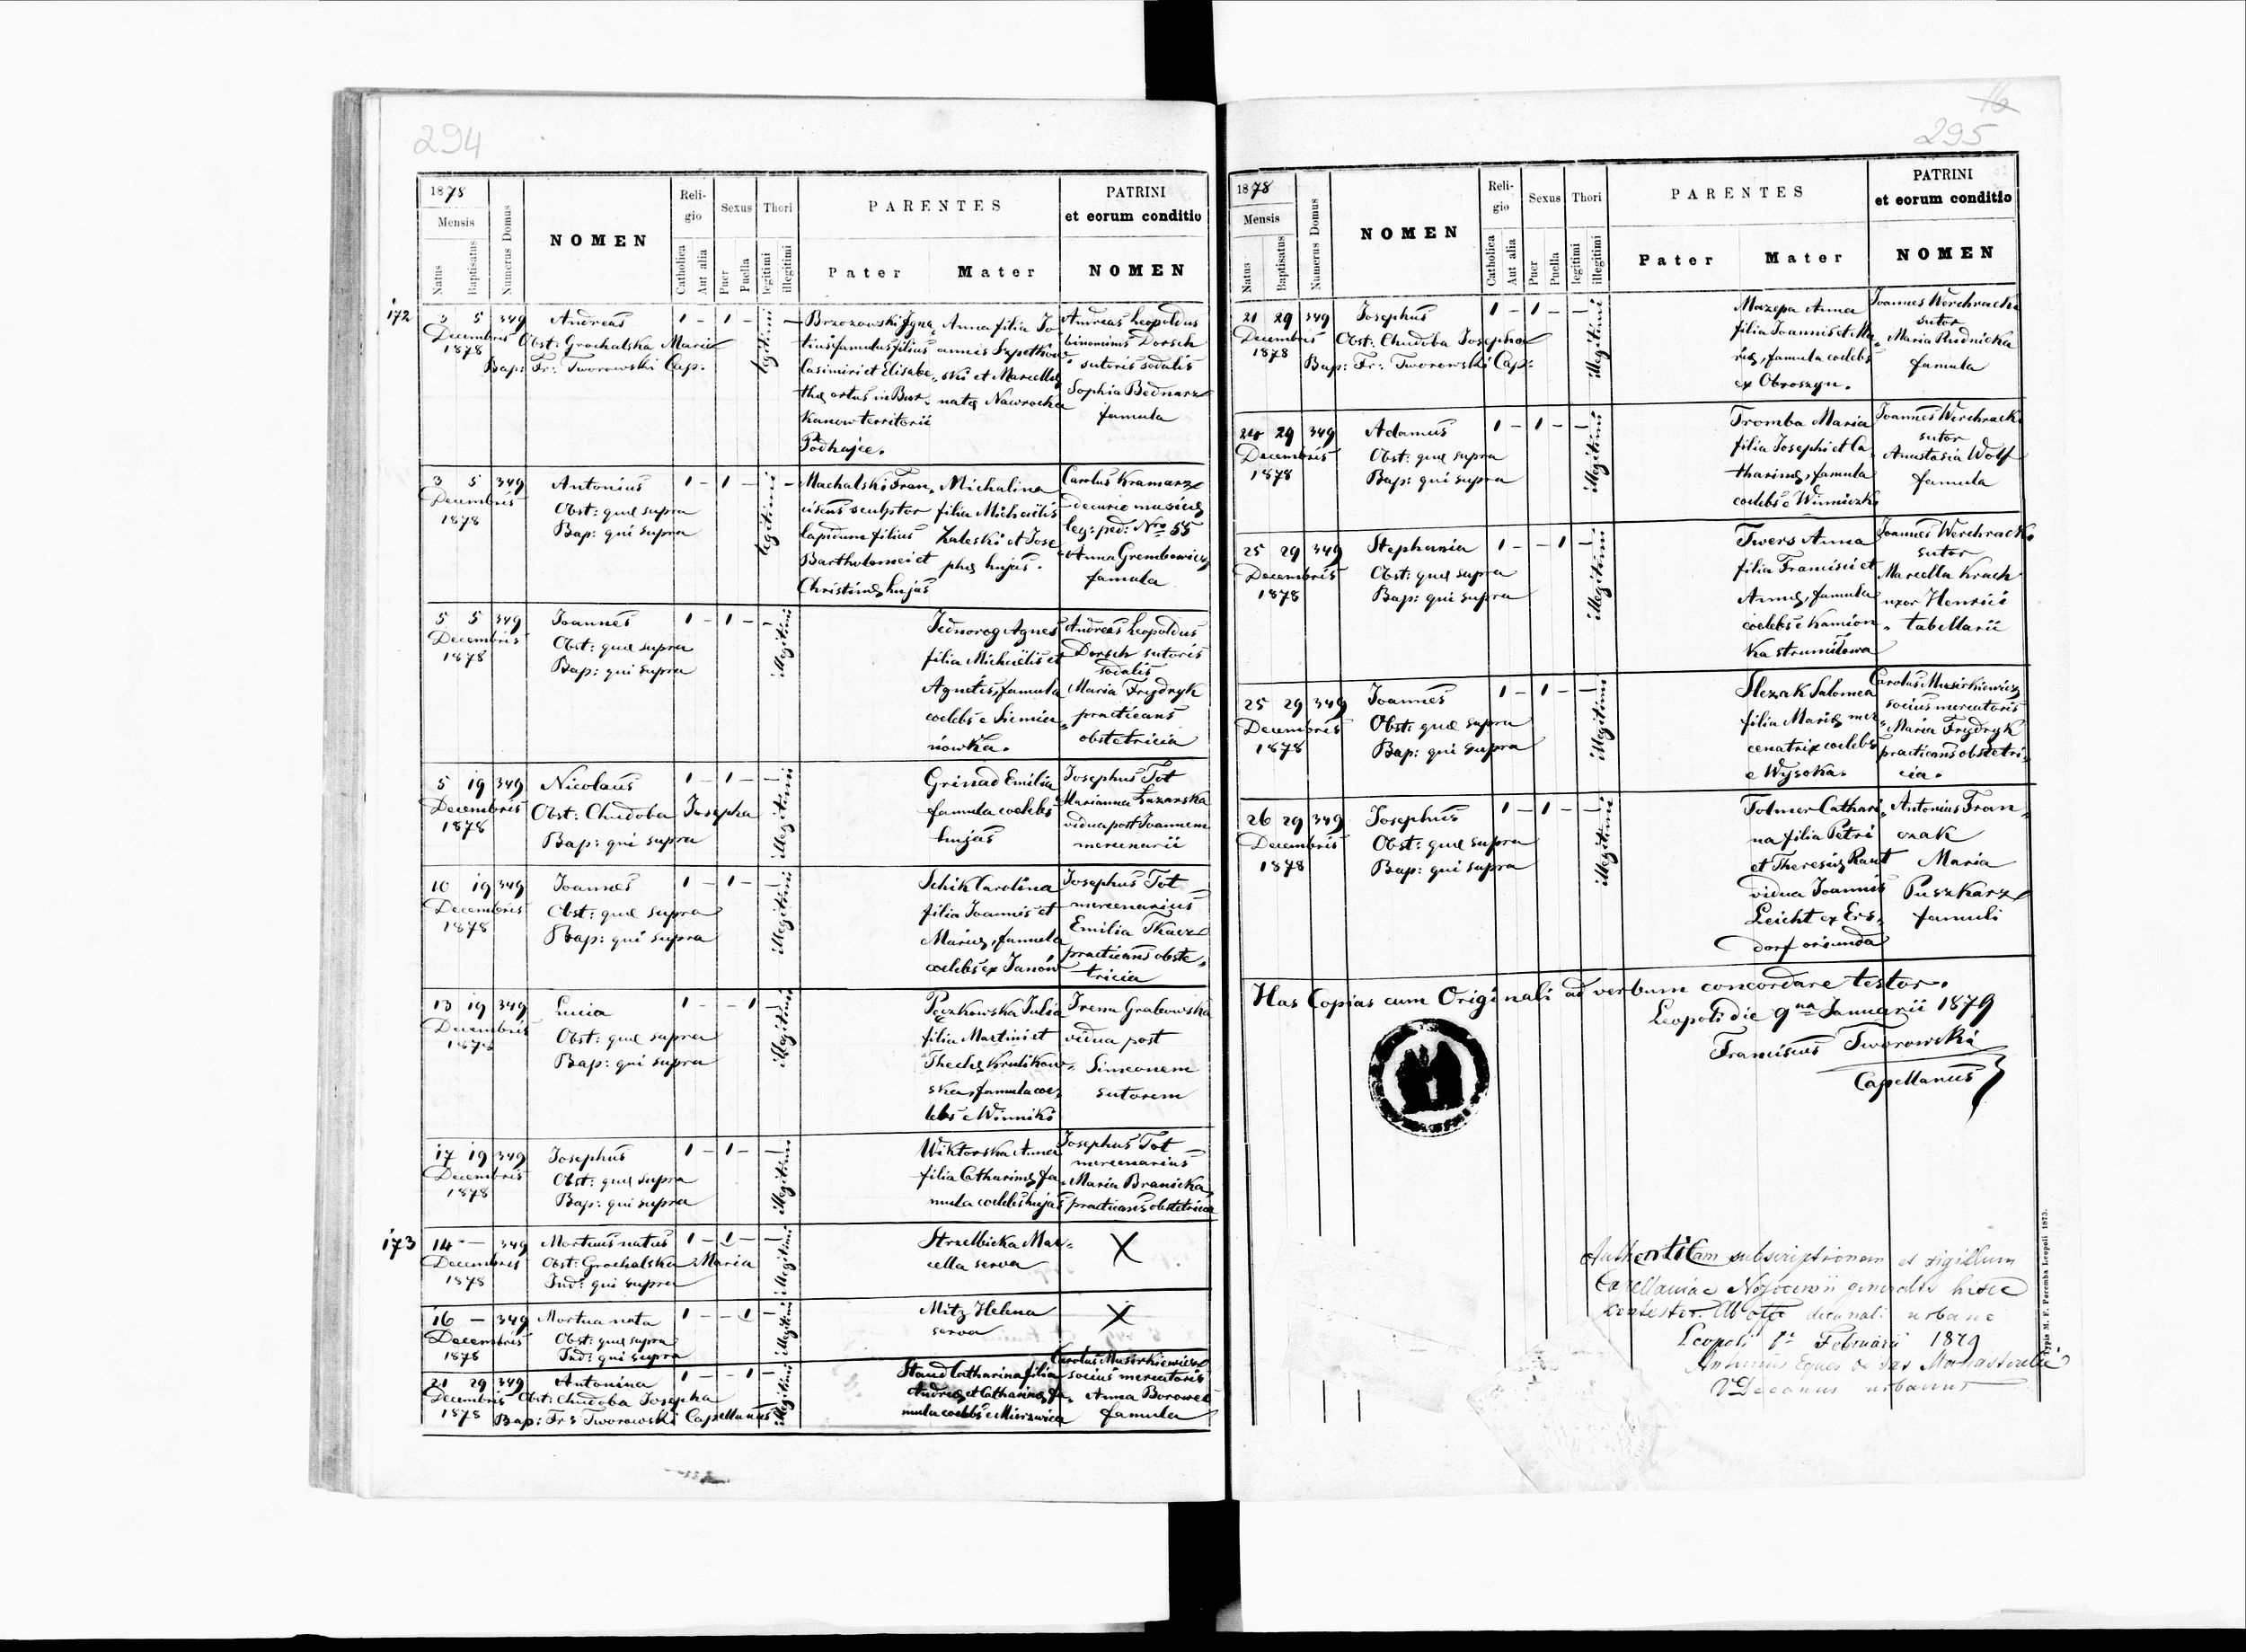 294
1878
Mensis
Natus
Baptisatus
Numerus Domus
NOMEN
Reli-
gio
Catholica
Aut alia
Sexus
Puer
Puella
Thori
legitimi
illegitimi
PARENTES
Pater
Mater
PATRINI
et eorum conditio
NOMEN
172
3 5 349 Andreas 1 - 1 - legitimi
Decembris Obst: Grochalska Maria
1878 Bap: Fr: Tworowski Cap:
Brzozowski Igna-
tius famulus filius
Casimiri et Elisabe-
thæ ortus in Bur-
kanow territorii
Podhajce.
Anna filia Jo-
annis Szpetkow-
ski et Marcellæ
natæ Nawrocka
Andreas Leopoldus
binominus Dorsch
sutoris sodalis
Sophia Bednarz
famula
3 5 349 Antonius 1 - 1 - legitimi
Decembris Obst: quæ supra
1878 Bap: qui supra
Machalski Fran-
ciscus sculptor
lapidum filius
Bartholomei et
Christinæ hujas
Michalina
filia Michaelis
Zaleski et Jose-
phæ hujas.
Carolus Kramarz
decurio musicus
leg: ped: Nro 55
Anna Grembowicz
famula
5 5 349 Joannes 1 - 1 - illegitimi
Decembris Obst: quæ supra
1878 Bap: qui supra
Jednorog Agnes
filia Michaëlis et
Agnetis, famula
coelebs e Siemia-
nowka.
Andreas Leopoldus
Dorsch sutoris
sodalis
Maria Frydryk
practicans
obstetricia
5 19 349 Nicolaus 1 - 1 - illegitimi
Decembris Obst: Chudoba Josepha
1878 Bap: qui supra
Grinad Emilia
famula coelebs
hujas
Josephus Tot
Marianna Łazarska
vidua post Joannem
mercenarii
10 19 349 Joannes 1 - 1 - illegitimi
Decembris Obst: quæ supra
1878 Bap: qui supra
Schik Carolina
filia Joannis et
Mariæ, famula
coelebs ex Janów
Josephus Tot
mercenarius
Emilia Tkacz
practicans obste-
tricia
13 19 349 Lucia 1 - - 1 illegitimi
Decembris Obst: quæ supra
1878 Bap: qui supra
Pęczkowska Julia
filia Martini et
Theclæ Krulikow-
ska, famula coe-
lebs e Winniki
Irena Grabowska
vidua post
Simeonem
sutorem
17 19 349 Josephus 1 - 1 - illegitimi
Decembris Obst: quæ supra
1878 Bap: qui supra
Wiktorska Anna
filia Catharinæ, fa-
mula coelebs hujas
Josephus Tot
mercenarius
Maria Branicka
practicans obstetricia
173
14 - 349 Mortuus natus 1 - 1 - illegitimi
Decembris Obst: Grochalska Maria
1878 Ind: qui supra
Strzelbicka Mar-
cella serva
X
16 - 349 Mortua nata 1 - - 1 illegitimi
Decembris Obst: quæ supra
1878 Ind: qui supra
Mitz Helena
serva
X
21 29 349 Antonina 1 - - 1 illegitimi
Decembris Obst: Chudoba Josepha
1878 Bap: Fr: Tworowski Capellanus
Staud Catharina filia
Andreæ et Catharinæ, fa-
mula coelebs e Mierzwica
Carolus Musirkiewicz
socius mercatoris
Anna Borowec
famula
16
295
1878
Mensis
Natus
Baptisatus
Numerus Domus
NOMEN
Reli-
gio
Catholica
Aut alia
Sexus
Puer
Puella
Thori
legitimi
illegitimi
PARENTES
Pater
Mater
PATRINI
et eorum conditio
NOMEN
21 29 349 Josephus 1 - 1 - illegitimi
Decembris Obst: Chudoba Josepha
1878 Bap: Fr: Tworowski Cap:
Mazepa Anna
filia Joannis et Ma-
riæ, famula coelebs
ex Obroszyn.
Joannes Werchracki
sutor
Maria Rudnicka
famula
24 29 349 Adamus 1 - 1 - illegitimi
Decembris Obst: quæ supra
1878 Bap: qui supra
Tromba Maria
filia Josephi et Ca-
tharinæ, famula
coelebs e Winniczki
Joannes Werchracki
sutor
Anastasia Wolf
famula
25 29 349 Stephania 1 - - 1 illegitimi
Decembris Obst: quæ supra
1878 Bap: qui supra
Twers Anna
filia Francisci et
Annæ, famula
coelebs e Kamion-
ka strumilowa
Joannes Werchracki
sutor
Marcella Krach
uxor Henrici
tabellarii
25 29 349 Joannes 1 - 1 - illegitimi
Decembris Obst: quæ supra
1878 Bap: qui supra
Slezak Salomea
filia Mariæ mer-
cenatrix coelebs
e Wysoka.
Carolus Musirkiewicz
socius mercatoris
Maria Frydryk
practicans obstetri-
cia.
26 29 349 Josephus 1 - 1 - illegitimi
Decembris Obst: quæ supra
1878 Bap: qui supra
Folmer Cathari-
na filia Petri
et Theresiæ Raut
vidua Joannis
Leicht ex Ers-
dorf oriunda
Antonius Fran-
czak
Maria
Puszkarz
famuli
Has Copias cum Originali ad verbum concordare testor.
Leopoli die 9na Januarii 1879
Franciscus Tworowski
Capellanus
Authenticam subscriptionem et sigillum
Capellaniae Nosocomii generalis hisce
contestor. Ab offo decanali urbano
Leopoli Februarii 1879
Antonius Eques de Manasterski
VDecanus urbanus
Typis M. F. Poremba Leopoli 1873.